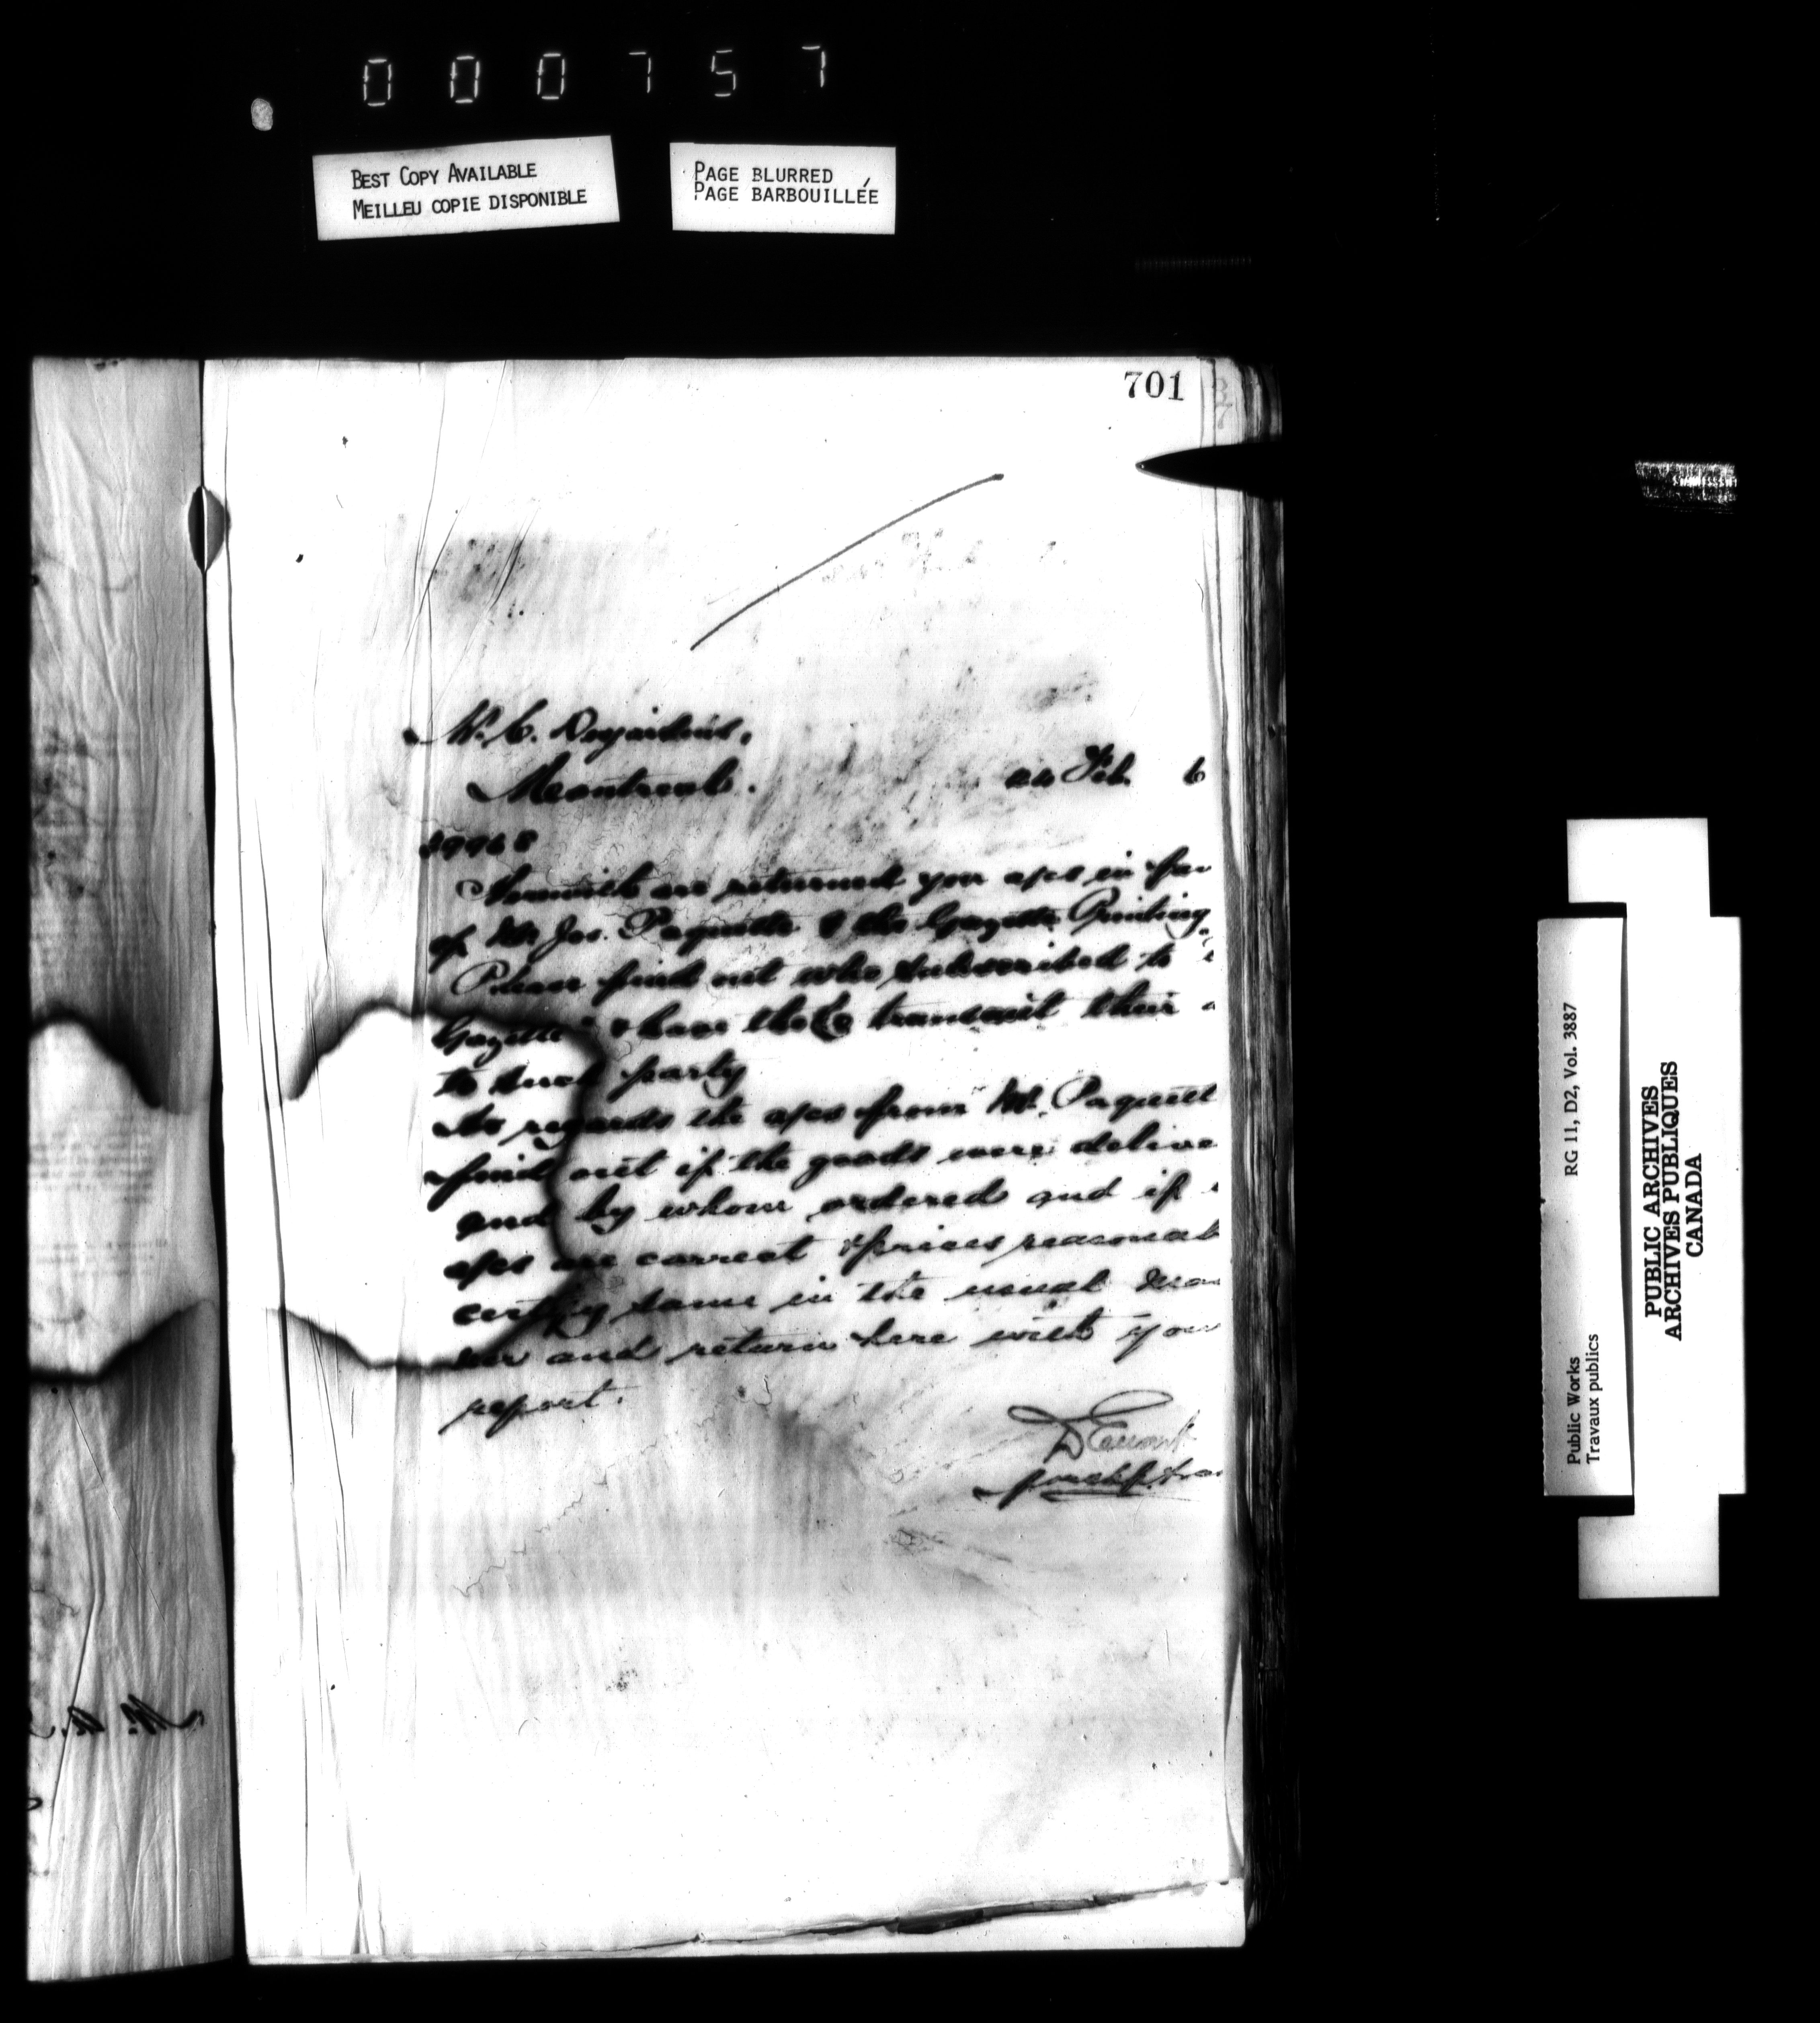 000757
BEST COPY AVAILABLE
MEILLEU COPIE DISPONIBLE
PAGE BLURRED
PAGE BARBOUILLÉE
701
Mr. C. Desjardins,
Montreal. 24 Feb. 6
Herewith are returned you a/cs in fav
of Mr. Jos. Paquette & the Gazette Printing
Please find out who subscribed to
Gazette" & have the Co transmit their
to such party
As regards the a/cs from Mr. Paquett
find out if the goods were delive
and by whom ordered and if
a/cs are correct & prices reasonab
certify same in the usual man
ner and return here with your
report.
RG 11, D2, Vol. 3887
Public Works
Travaux publics
PUBLIC ARCHIVES
ARCHIVES PUBLIQUES
CANADA